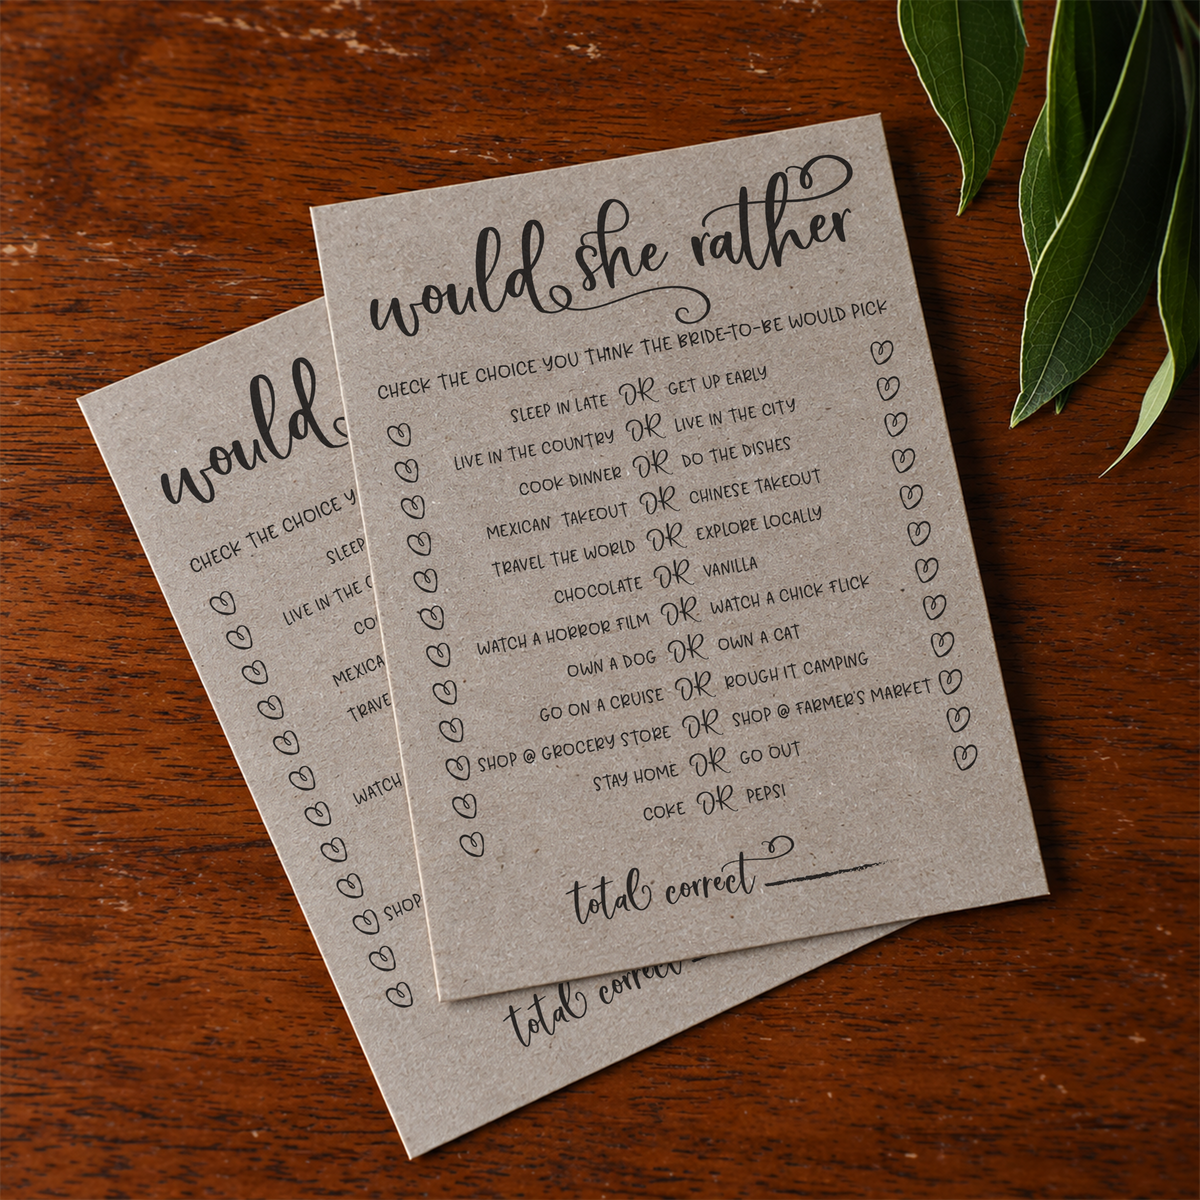 would she rather
CHECK THE CHOICE YOU THINK THE BRIDE-TO-BE WOULD PICK
SLEEP IN LATE OR GET UP EARLY
LIVE IN THE COUNTRY OR LIVE IN THE CITY
COOK DINNER OR DO THE DISHES
MEXICAN TAKEOUT OR CHINESE TAKEOUT
TRAVEL THE WORLD OR EXPLORE LOCALLY
CHOCOLATE OR VANILLA
WATCH A HORROR FILM OR WATCH A CHICK FLICK
OWN A DOG OR OWN A CAT
GO ON A CRUISE OR ROUGH IT CAMPING
SHOP @ GROCERY STORE OR SHOP @ FARMER'S MARKET
STAY HOME OR GO OUT
COKE OR PEPSI
total correct
would
CHECK THE CHOICE Y
SLEEP
LIVE IN THE C
CO
MEXICA
TRAVE
WATCH
SHOP
total correct